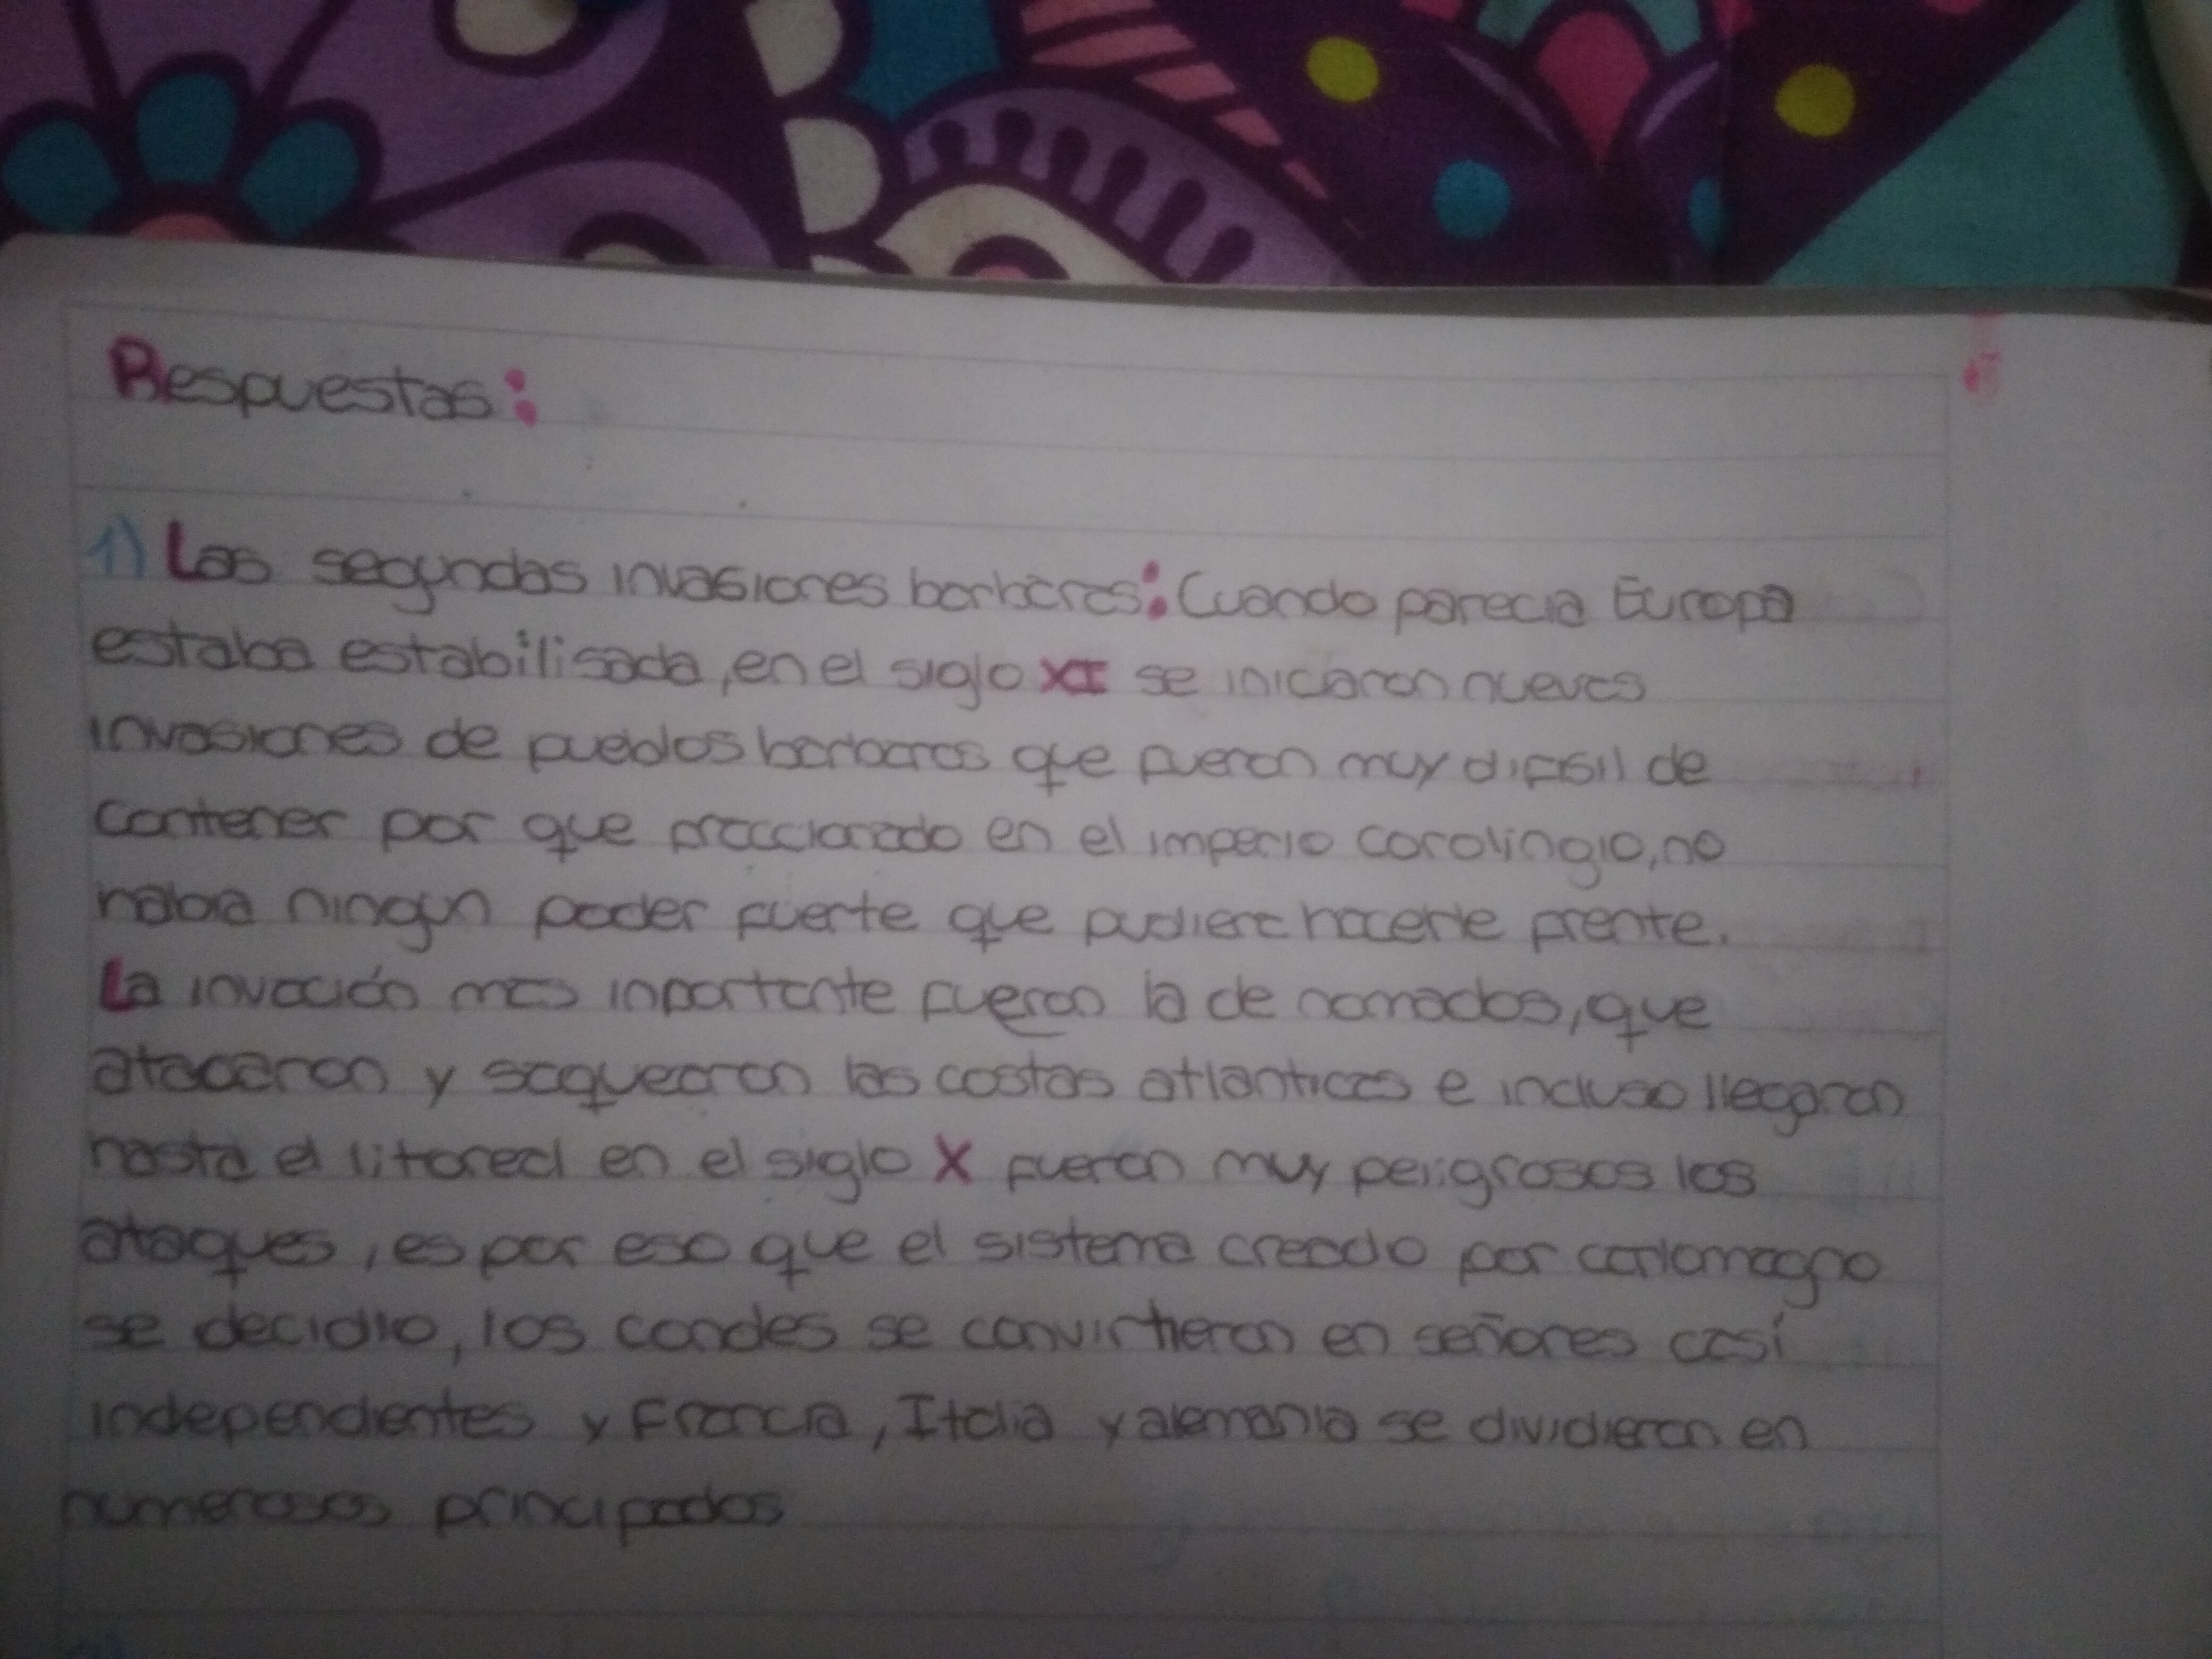 Respuestas:
1) Las segundas invasiones barbaras: Cuando parecia Europa
estaba estabilisada, en el siglo XI se iniciaron nuevas
invasiones de pueblos barbaros que fueron muy dificil de
contener por que fraccionado en el imperio carolingio, no
habia ningun poder fuerte que pudiera hacerle frente.
La invación mas inportante fueron la de nomados, que
atacaron y saquearon las costas atlanticas e incluso llegaron
hasta el litoreal en el siglo X fueron muy peligrosos los
ataques, es por eso que el sistema creado por carlomagno
se decidio, los condes se convirtieron en señores casí
independientes y Francia, Italia y alemania se dividieron en
numerosos principados